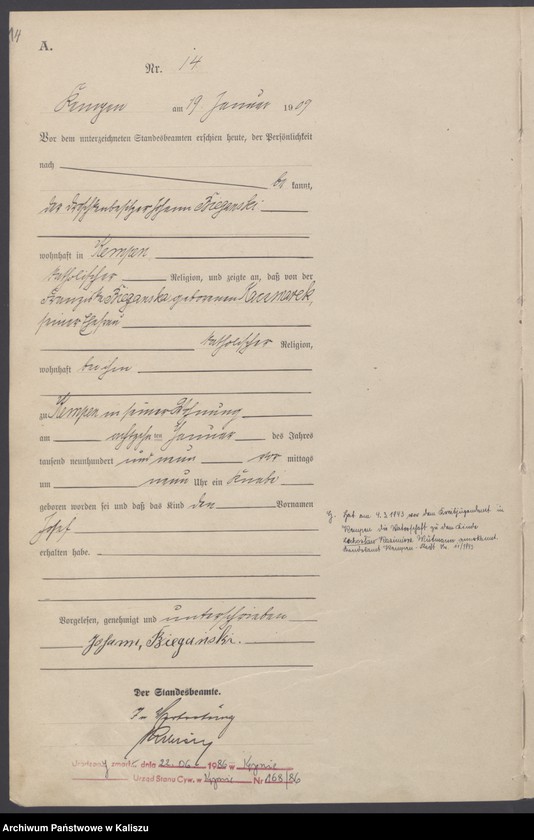 14
A.
Nr. 14
Kempen am 19 Januar 1909
Vor dem unterzeichneten Standesbeamten erschien heute, der Persönlichkeit
nach
be kannt,
der Droschkenbesitzer Johann Biegański
wohnhaft in Kempen
katholischer Religion, und zeigte an, daß von der
Franziska Biegańska geborenen Kaczmarek,
seiner Ehefrau
katholischer Religion,
wohnhaft bei ihm
zu Kempen in seiner Wohnung
am achtzehnten Januar des Jahres
tausend neunhundert und neun vor mittags
um neun Uhr ein Knabe
geboren worden sei und daß das Kind den Vornamen
Josef
erhalten habe.
Vorgelesen, genehmigt und unterschrieben
Johann Biegański.
Der Standesbeamte.
In Vertretung
G. Hat am 4.3.1943 vor dem Kreisjugendamt in
Kempen die Vaterschaft zu dem Kinde
Kasimir anerkannt
Standesamt Kempen-Stadt No.
zmarł dnia 23.06. 1986 w Kępnie
Urząd Stanu Cyw. w Kępnie Nr 168/86
Archiwum Państwowe w Kaliszu